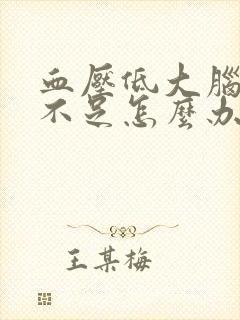 血壓低大腦
不足怎麼办
王某梅